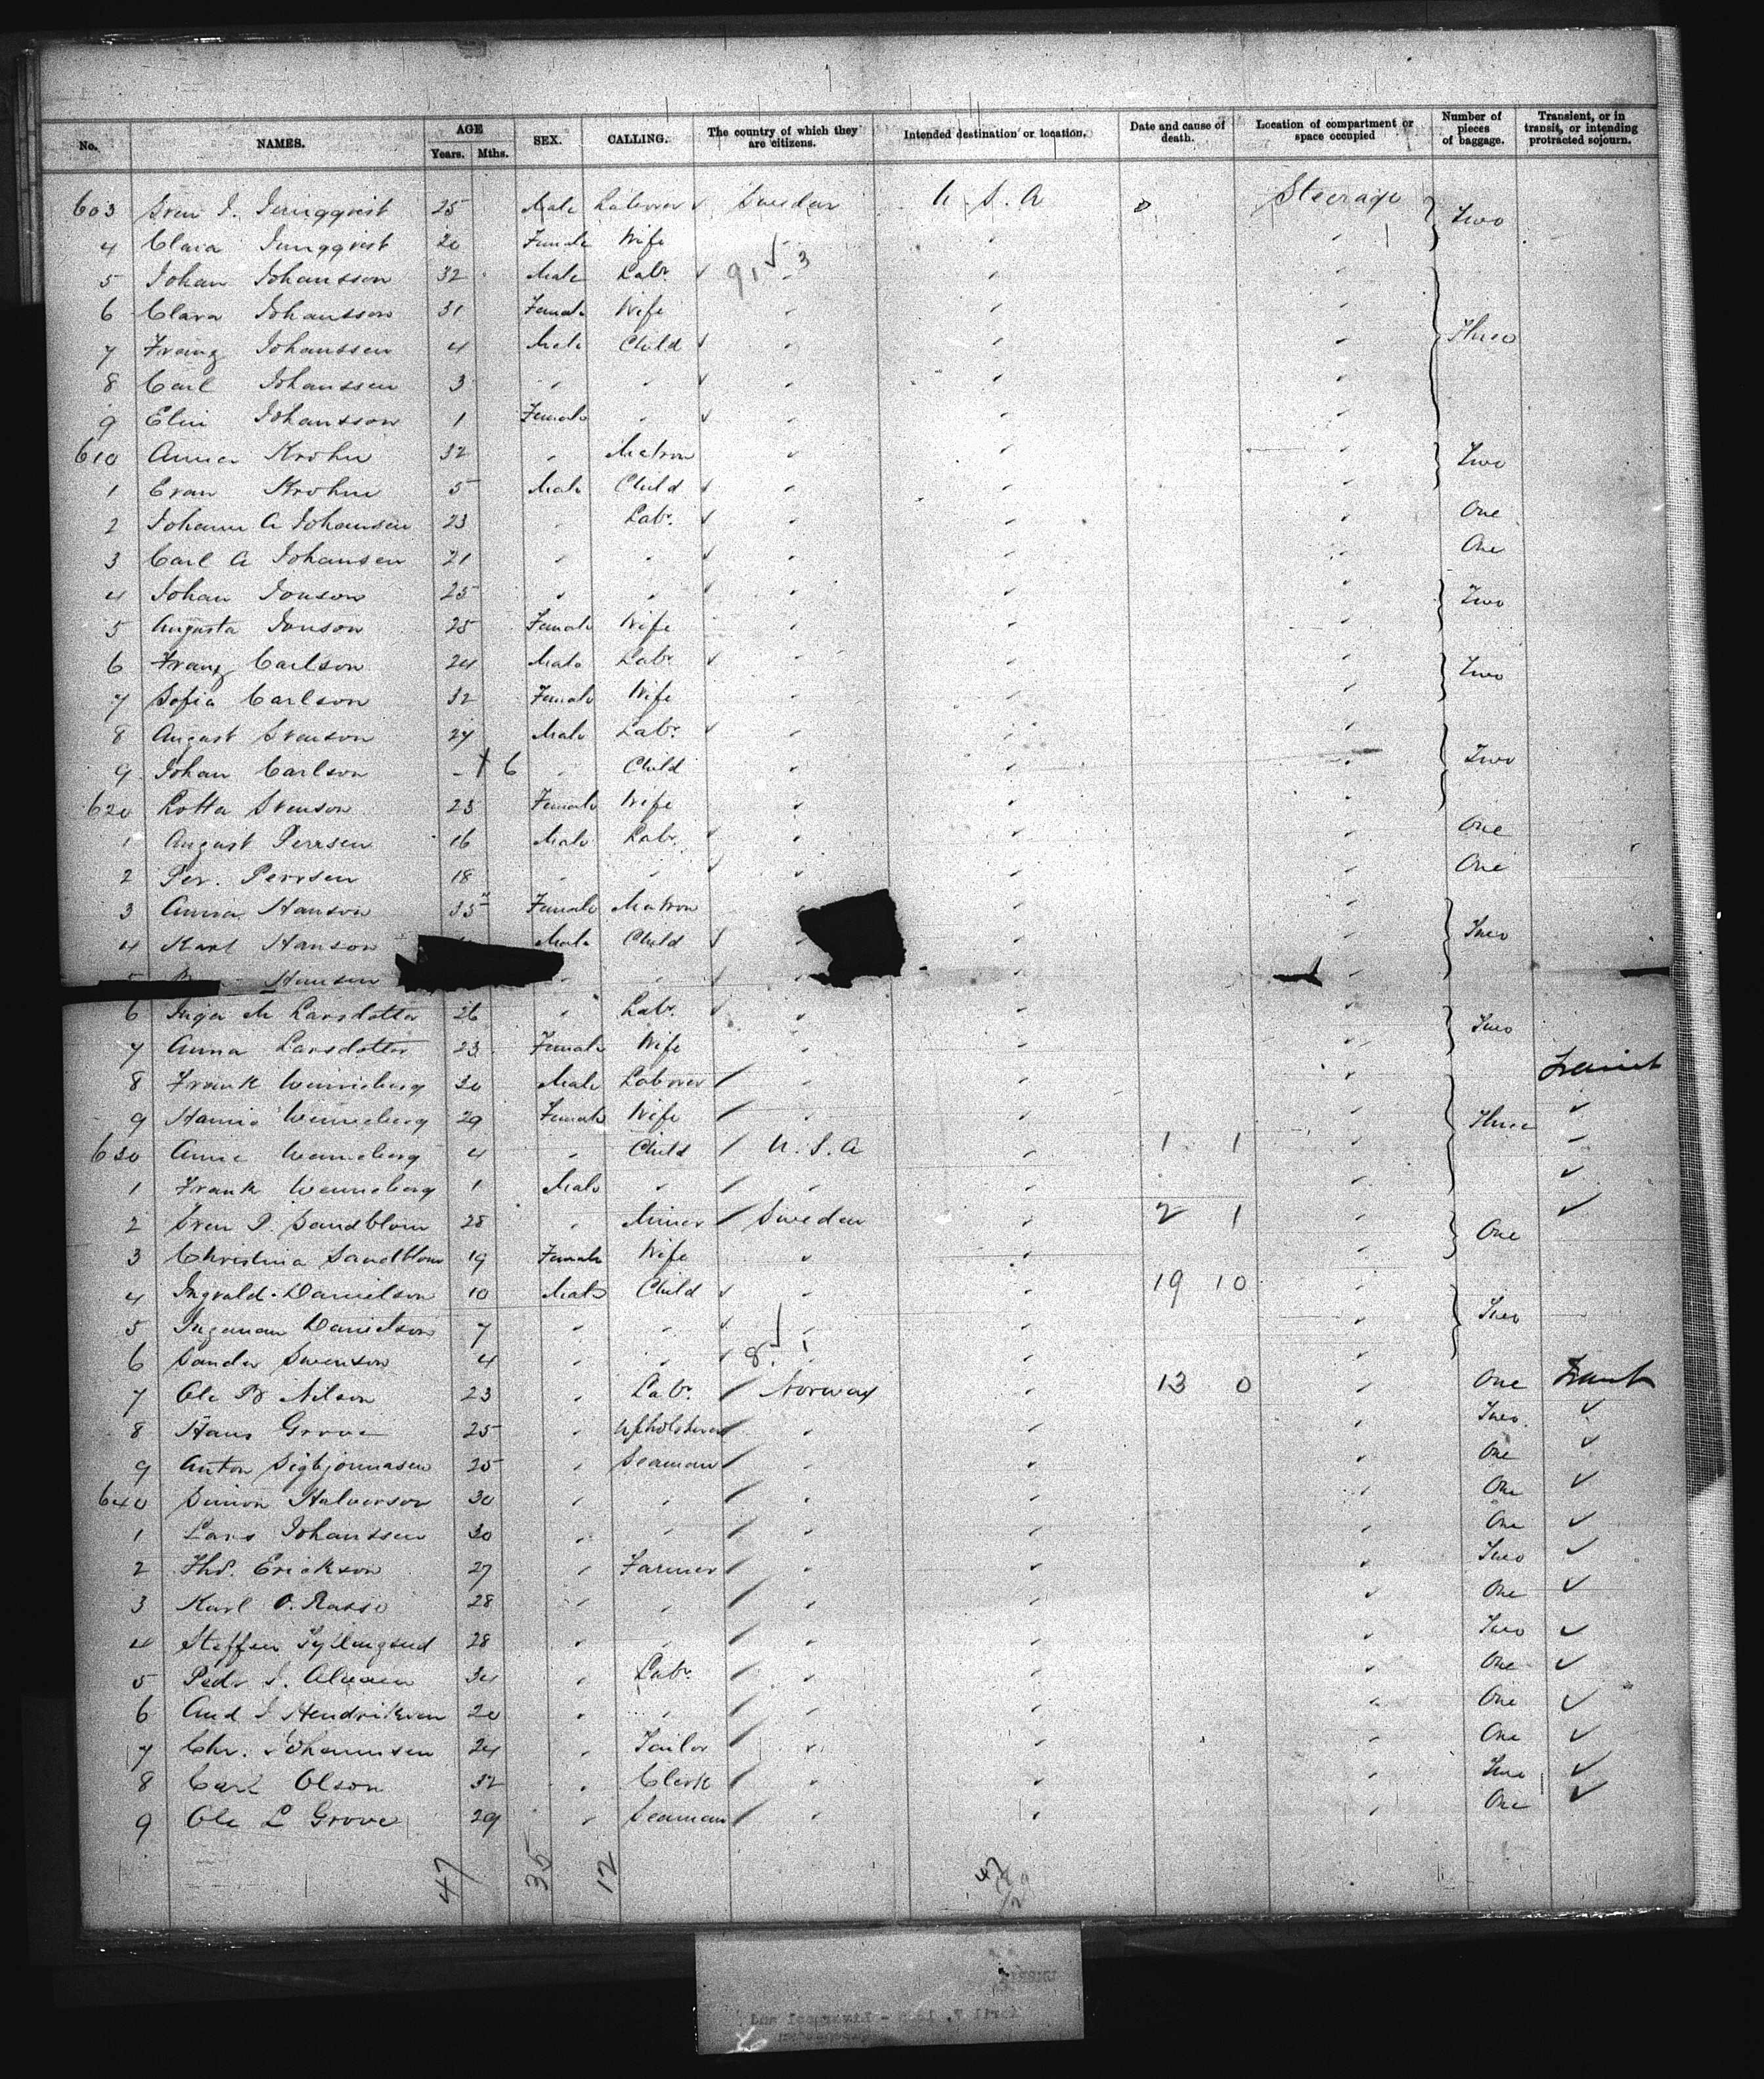 No. NAMES. AGE Years. Mths. SEX. CALLING. The country of which they are citizens. Intended destination or location. Date and cause of death. Location of compartment or space occupied Number of pieces of baggage. Transient, or in transit, or intending protracted sojourn.
603 Sven J. Jungqvist 25 Male Laborer Sweden U.S.A Steerage Two
4 Clara Jungqvist 20 Female Wife
5 Johan Johansson 32 Male Labr. 91 3
6 Clara Johansson 31 Female Wife
7 Franz Johanssen 4 Male Child Three
8 Carl Johanssen 3 " "
9 Elin Johansson 1 Female "
610 Anna Krohn 32 " Matron Two
1 Evan Krohn 5 Male Child
2 Johann A Johansen 23 " Labr. One
3 Carl A Johansen 21 " " One
4 Johan Jonson 25 " " Two
5 Augusta Jonson 25 Female Wife
6 Franz Carlson 24 Male Labr. Two
7 Sofia Carlson 32 Female Wife
8 August Svenson 27 Male Labr.
9 Johan Carlson - 6 " Child Two
620 Lotta Svenson 23 Female Wife
1 August Perrsen 16 Male Labr. One
2 Per. Perrsen 18 " " One
3 Anna Hanson 35 Female Matron
4 Karl Hanson Male Child Two
5 Hansen " "
6 Inga M Larsdotter 26 " Labr. Two
7 Anna Larsdotter 23 Female Wife
8 Frank Wenneberg 30 Male Laborer Transit
9 Hanna Wenneberg 29 Female Wife Three
630 Annie Wenneberg 4 " Child U.S.A 1 1
1 Frank Wenneberg 1 Male "
2 Sven P. Sandblom 28 " Miner Sweden 2 1 One
3 Christina Sandblom 19 Female Wife
4 Ingvald Danielson 10 Male Child 19 10
5 Danielson 7 " " Two
6 Sander Swenson 4 " " 8 1
7 Ole B Nilson 23 " Labr. Norway 13 0 One Transit
8 Hans Grove 25 " Upholsterer Two
9 Anton Sigbjornnasen 25 " Seaman One
640 Simon Halverson 30 " " One
1 Lars Johanssen 30 " " One
2 Thd. Erickson 27 " Farmer Two
3 Karl O. 28 " " One
4 Steffen 28 " " Two
5 Pedr J. 34 " Labr. One
6 And J Hendriksen 20 " " One
7 Chr. Johannsen 24 " Tailor One
8 Carl Olson 32 " Clerk Two
9 Ole L Grove 29 " Seaman One
47 35 12